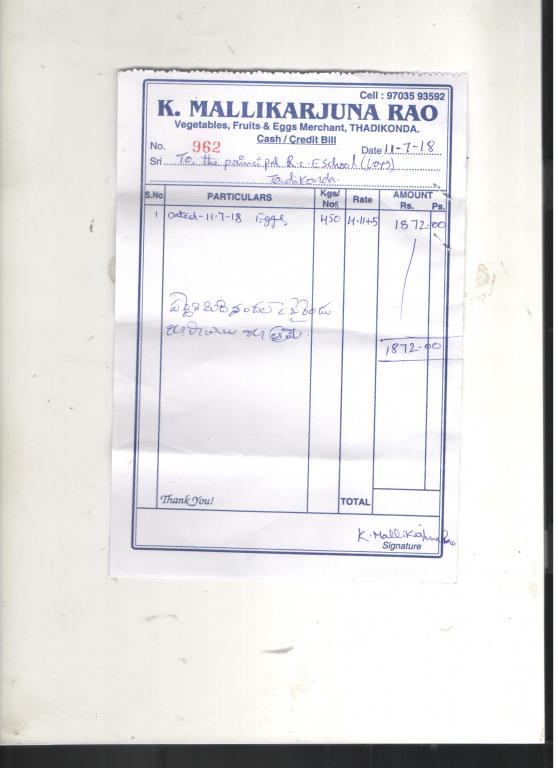 Cell : 97035 93592
K. MALLIKARJUNA RAO
Vegetables, Fruits & Eggs Merchant, THADIKONDA.
Cash / Credit Bill
No. 962 Date 11-7-18
Sri To, the principal R.C.E School (
Tadikonda.
S.No. PARTICULARS Kgs/ Nos. Rate AMOUNT Rs. Ps.
1 Dated-11-7-18 Eggs 450 1872.00
1872-00
Thank You! TOTAL
K. Mallikarjuna Rao
Signature